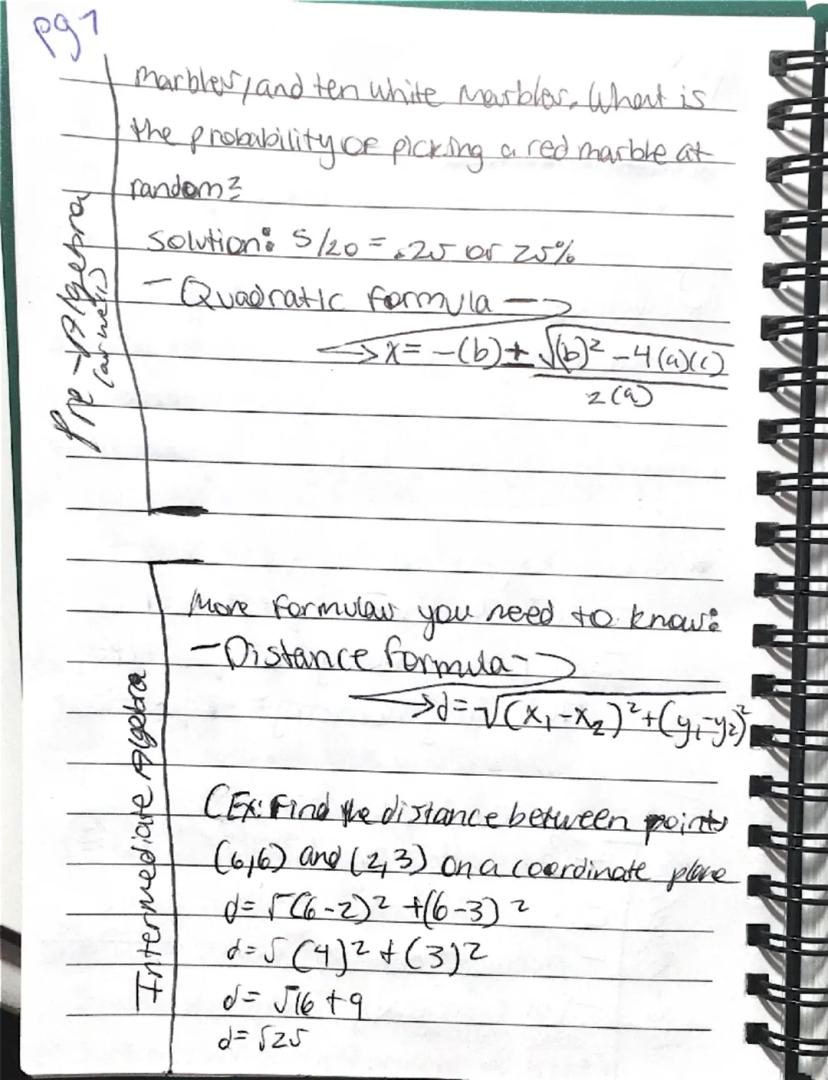 pg 1
marbles, and ten white marbles. What is
the probability of picking a red marble at
random?
Solution: 5/20 = .25 or 25%
- Quadratic formula →
→ x = -(b) ± √(b)² - 4(a)(c)
2(a)
Pre-Algebra
More formulas you need to know:
- Distance formula -
→ d = √(x₁ - x₂)² + (y₁ - y₂)²
(Ex: Find the distance between points
(6,6) and (2,3) on a coordinate plane
d = √(6-2)² + (6-3)²
d = √(4)² + (3)²
d = √16 + 9
d = √25
Intermediate Algebra